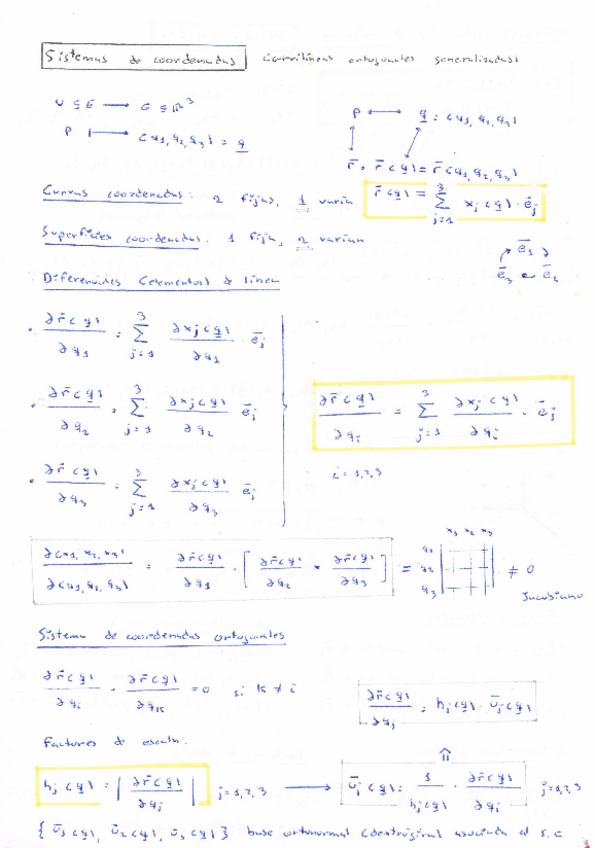 Sistemas de coordenadas curvilíneas ortogonales generalizadas
U ⊆ E → G ⊆ ℝ³
P ↦ (q1, q2, q3) = q
P ↔ q = (q1, q2, q3)
r̄ = r̄(q) = r̄(q1, q2, q3)
Curvas coordenadas: 2 fijas, 1 varía
r̄(q) = Σ_{j=1}^{3} xj(q) · ēj
Superficies coordenadas: 1 fija, 2 varían
ē1
ē3 ← ē2
Diferenciales (elementos) de línea
• ∂r̄(q)/∂q1 = Σ_{j=1}^{3} ∂xj(q)/∂q1 · ēj
• ∂r̄(q)/∂q2 = Σ_{j=1}^{3} ∂xj(q)/∂q2 ēj
• ∂r̄(q)/∂q3 = Σ_{j=1}^{3} ∂xj(q)/∂q3 ēj
∂r̄(q)/∂qi = Σ_{j=1}^{3} ∂xj(q)/∂qi · ēj
i = 1,2,3
∂(x1, x2, x3)/∂(q1, q2, q3) = ∂r̄(q)/∂q1 · [∂r̄(q)/∂q2 × ∂r̄(q)/∂q3] = | | ≠ 0
x1 x2 x3
q1
q2
q3
Jacobiano
Sistema de coordenadas ortogonales
∂r̄(q)/∂qi · ∂r̄(q)/∂qk = 0 si k ≠ i
∂r̄(q)/∂qj = hj(q) · ūj(q)
Factores de escala:
⇑
hj(q) = |∂r̄(q)/∂qj| j = 1,2,3 → ūj(q) = 1/hj(q) · ∂r̄(q)/∂qj j = 1,2,3
{ū1(q), ū2(q), ū3(q)} base ortonormal (dextrógira) asociada al s.c